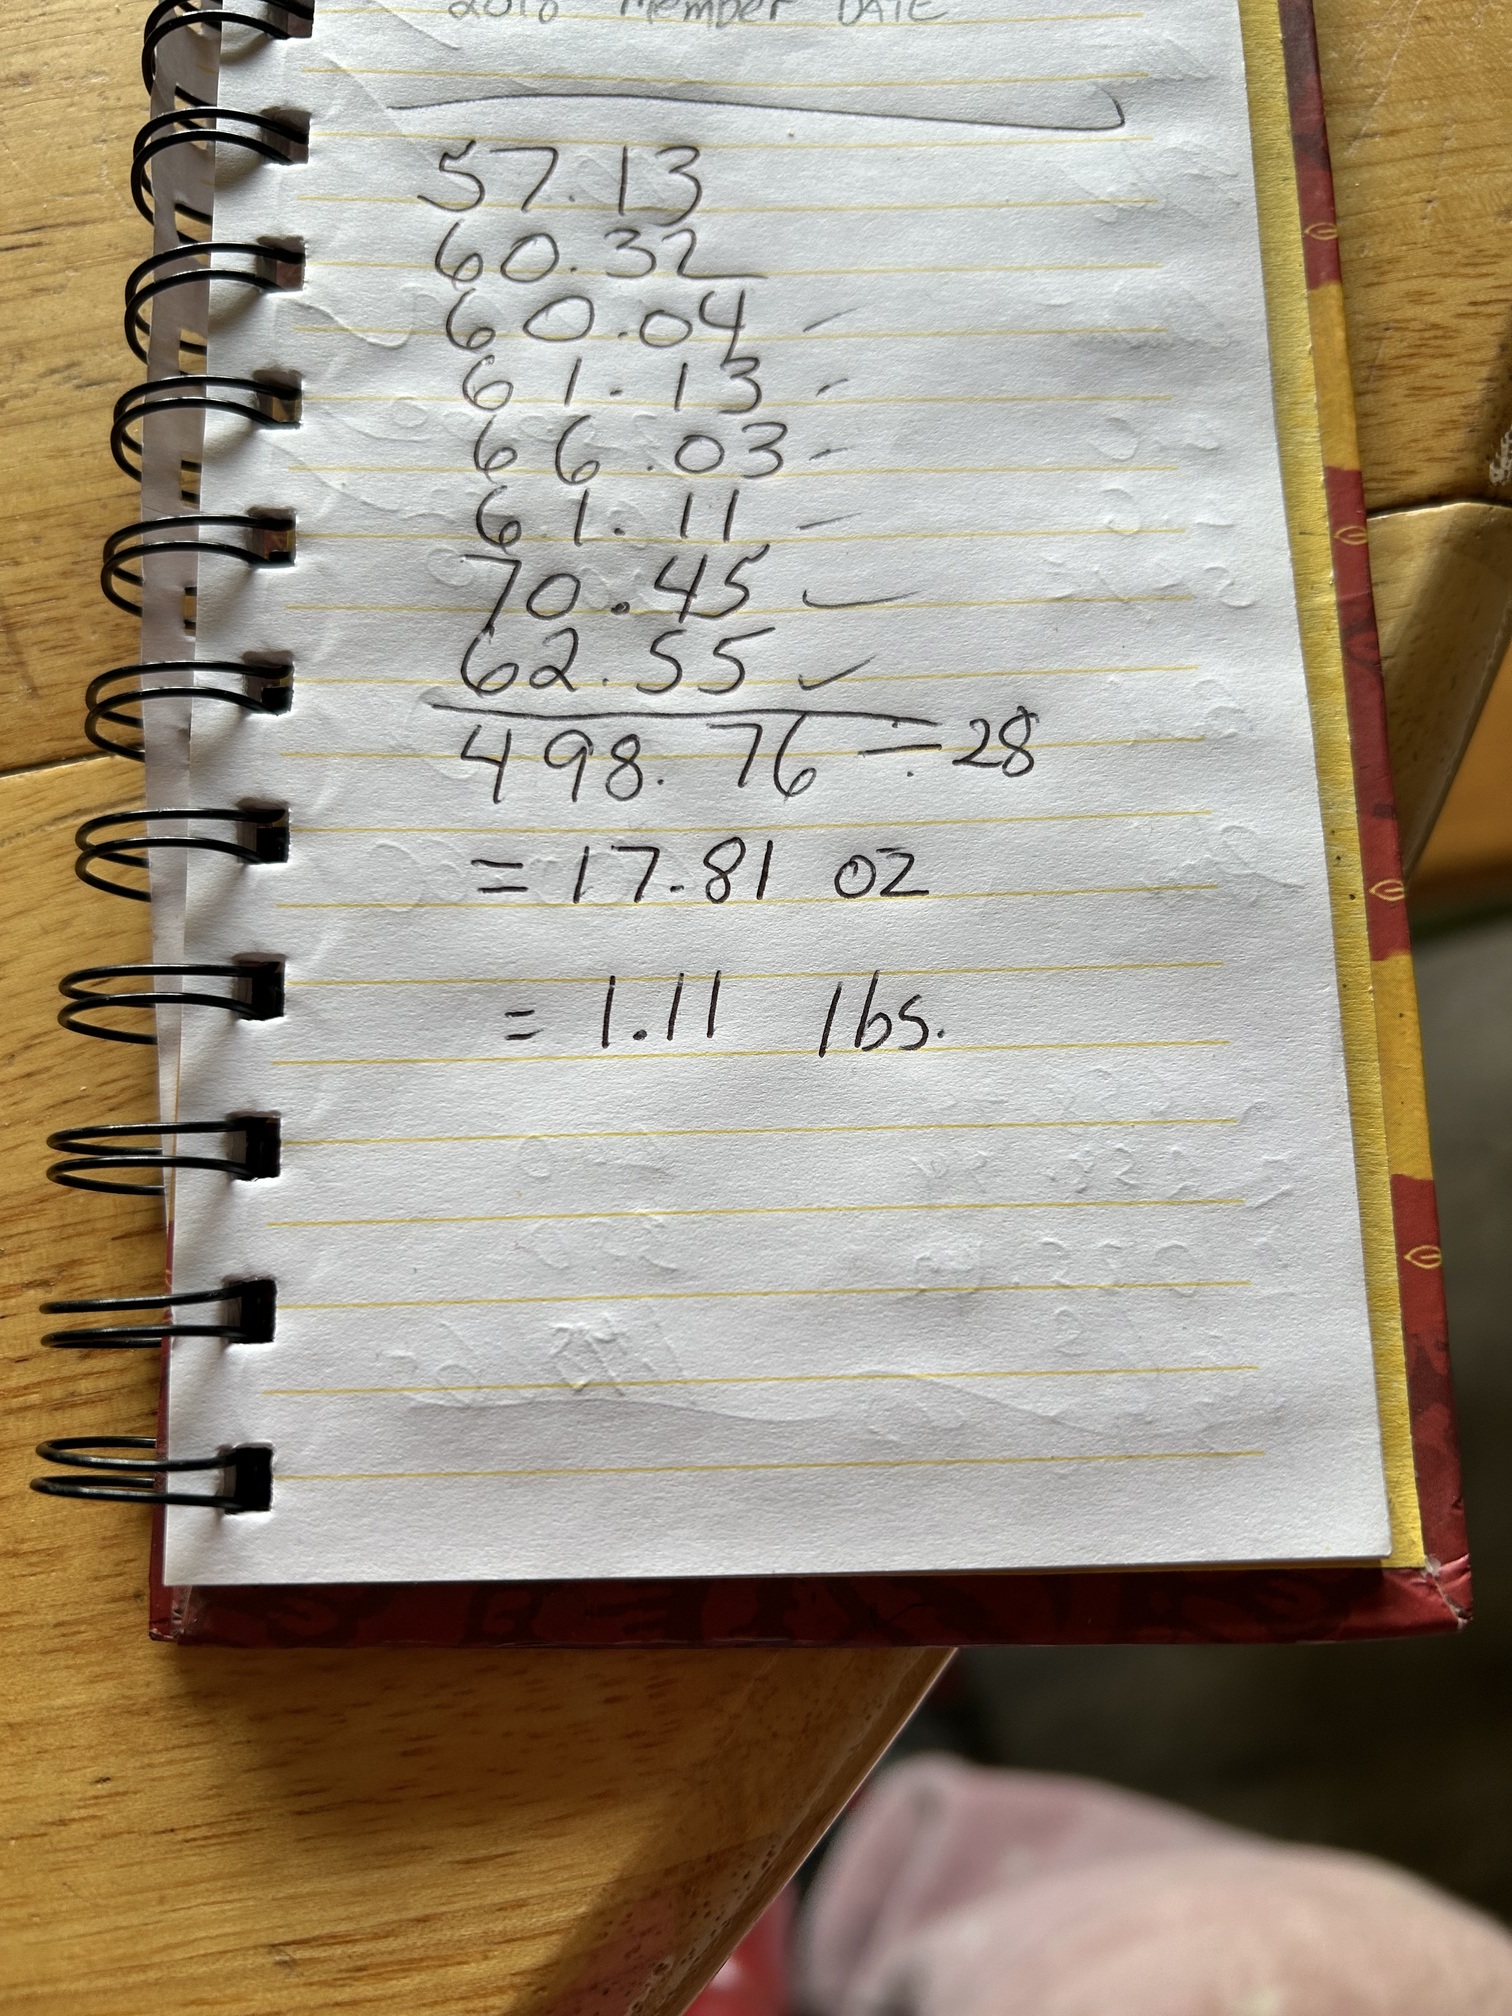 2018 Member DATE
57.13
60.32
60.04 -
61.13 -
66.03 -
61.11 -
70.45 ✓
62.55 ✓
498.76 ÷ 28
= 17.81 oz
= 1.11 lbs.